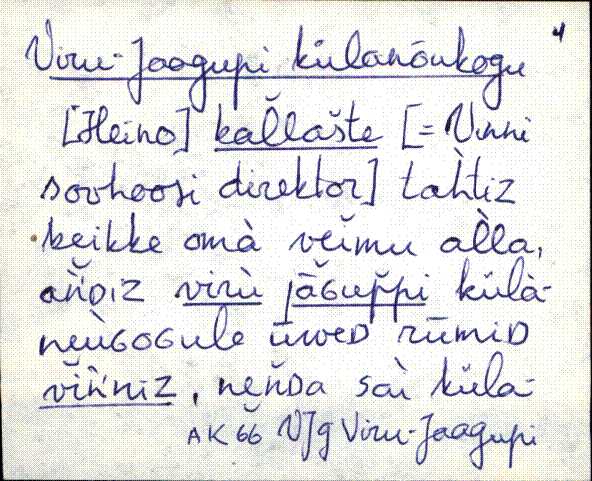 4
Viru-Jaagupi külanõukogu
[Heino] kal̆lašte [= Vinni
sovhoosi direktor] taht̀iz
keikke omà vĕimu al̀la,
an̆Diz virù jăGup̆pi külà-
neùGoGule ūweD rūmiD
vĭǹniz, nen̆Da saì küla-
AK 66 VJg Viru-Jaagupi